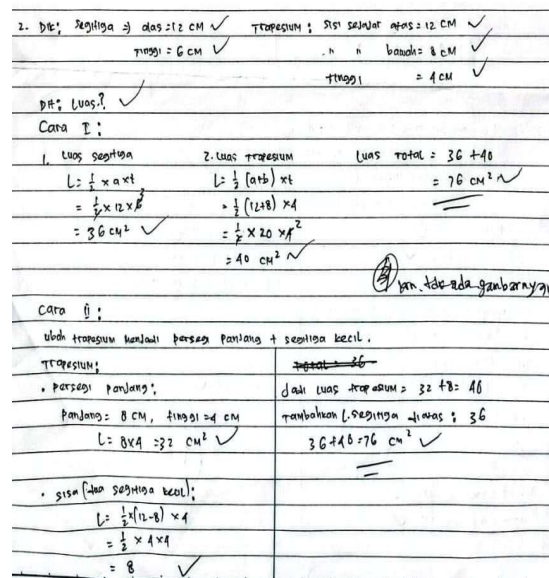 2. Dit: Segitiga => alas = 12 CM ✓ Trapesium: Sisi sejajar atas = 12 CM ✓
Tinggi = 6 CM ✓ " " bawah = 8 CM ✓
tinggi = 4 CM ✓
Dit: Luas? ✓
Cara I:
1. Luas segitiga
L = 1/2 x a x t
= 1/2 x 12 x 6 3
= 36 cm² ✓
2. Luas trapesium
L = 1/2 (a+b) x t
= 1/2 (12+8) x 4
= 1/2 x 20 x 4 2
= 40 cm² ✓
Luas total = 36 + 40
= 76 cm² ✓
3 gambarnya
Cara II:
ubah trapesium menjadi persegi panjang + segitiga kecil.
Trapesium:
• Persegi panjang:
Panjang = 8 CM, tinggi = 4 cm
L = 8x4 = 32 cm² ✓
• sisa (dua segitiga kecil):
L = 1/2 x (12-8) x 4
= 1/2 x 4 x 4
= 8 ✓
Total = 36
Jadi luas trapesium = 32 + 8 = 40
Tambahkan L. segitiga diatas: 36
36+40 = 76 cm² ✓